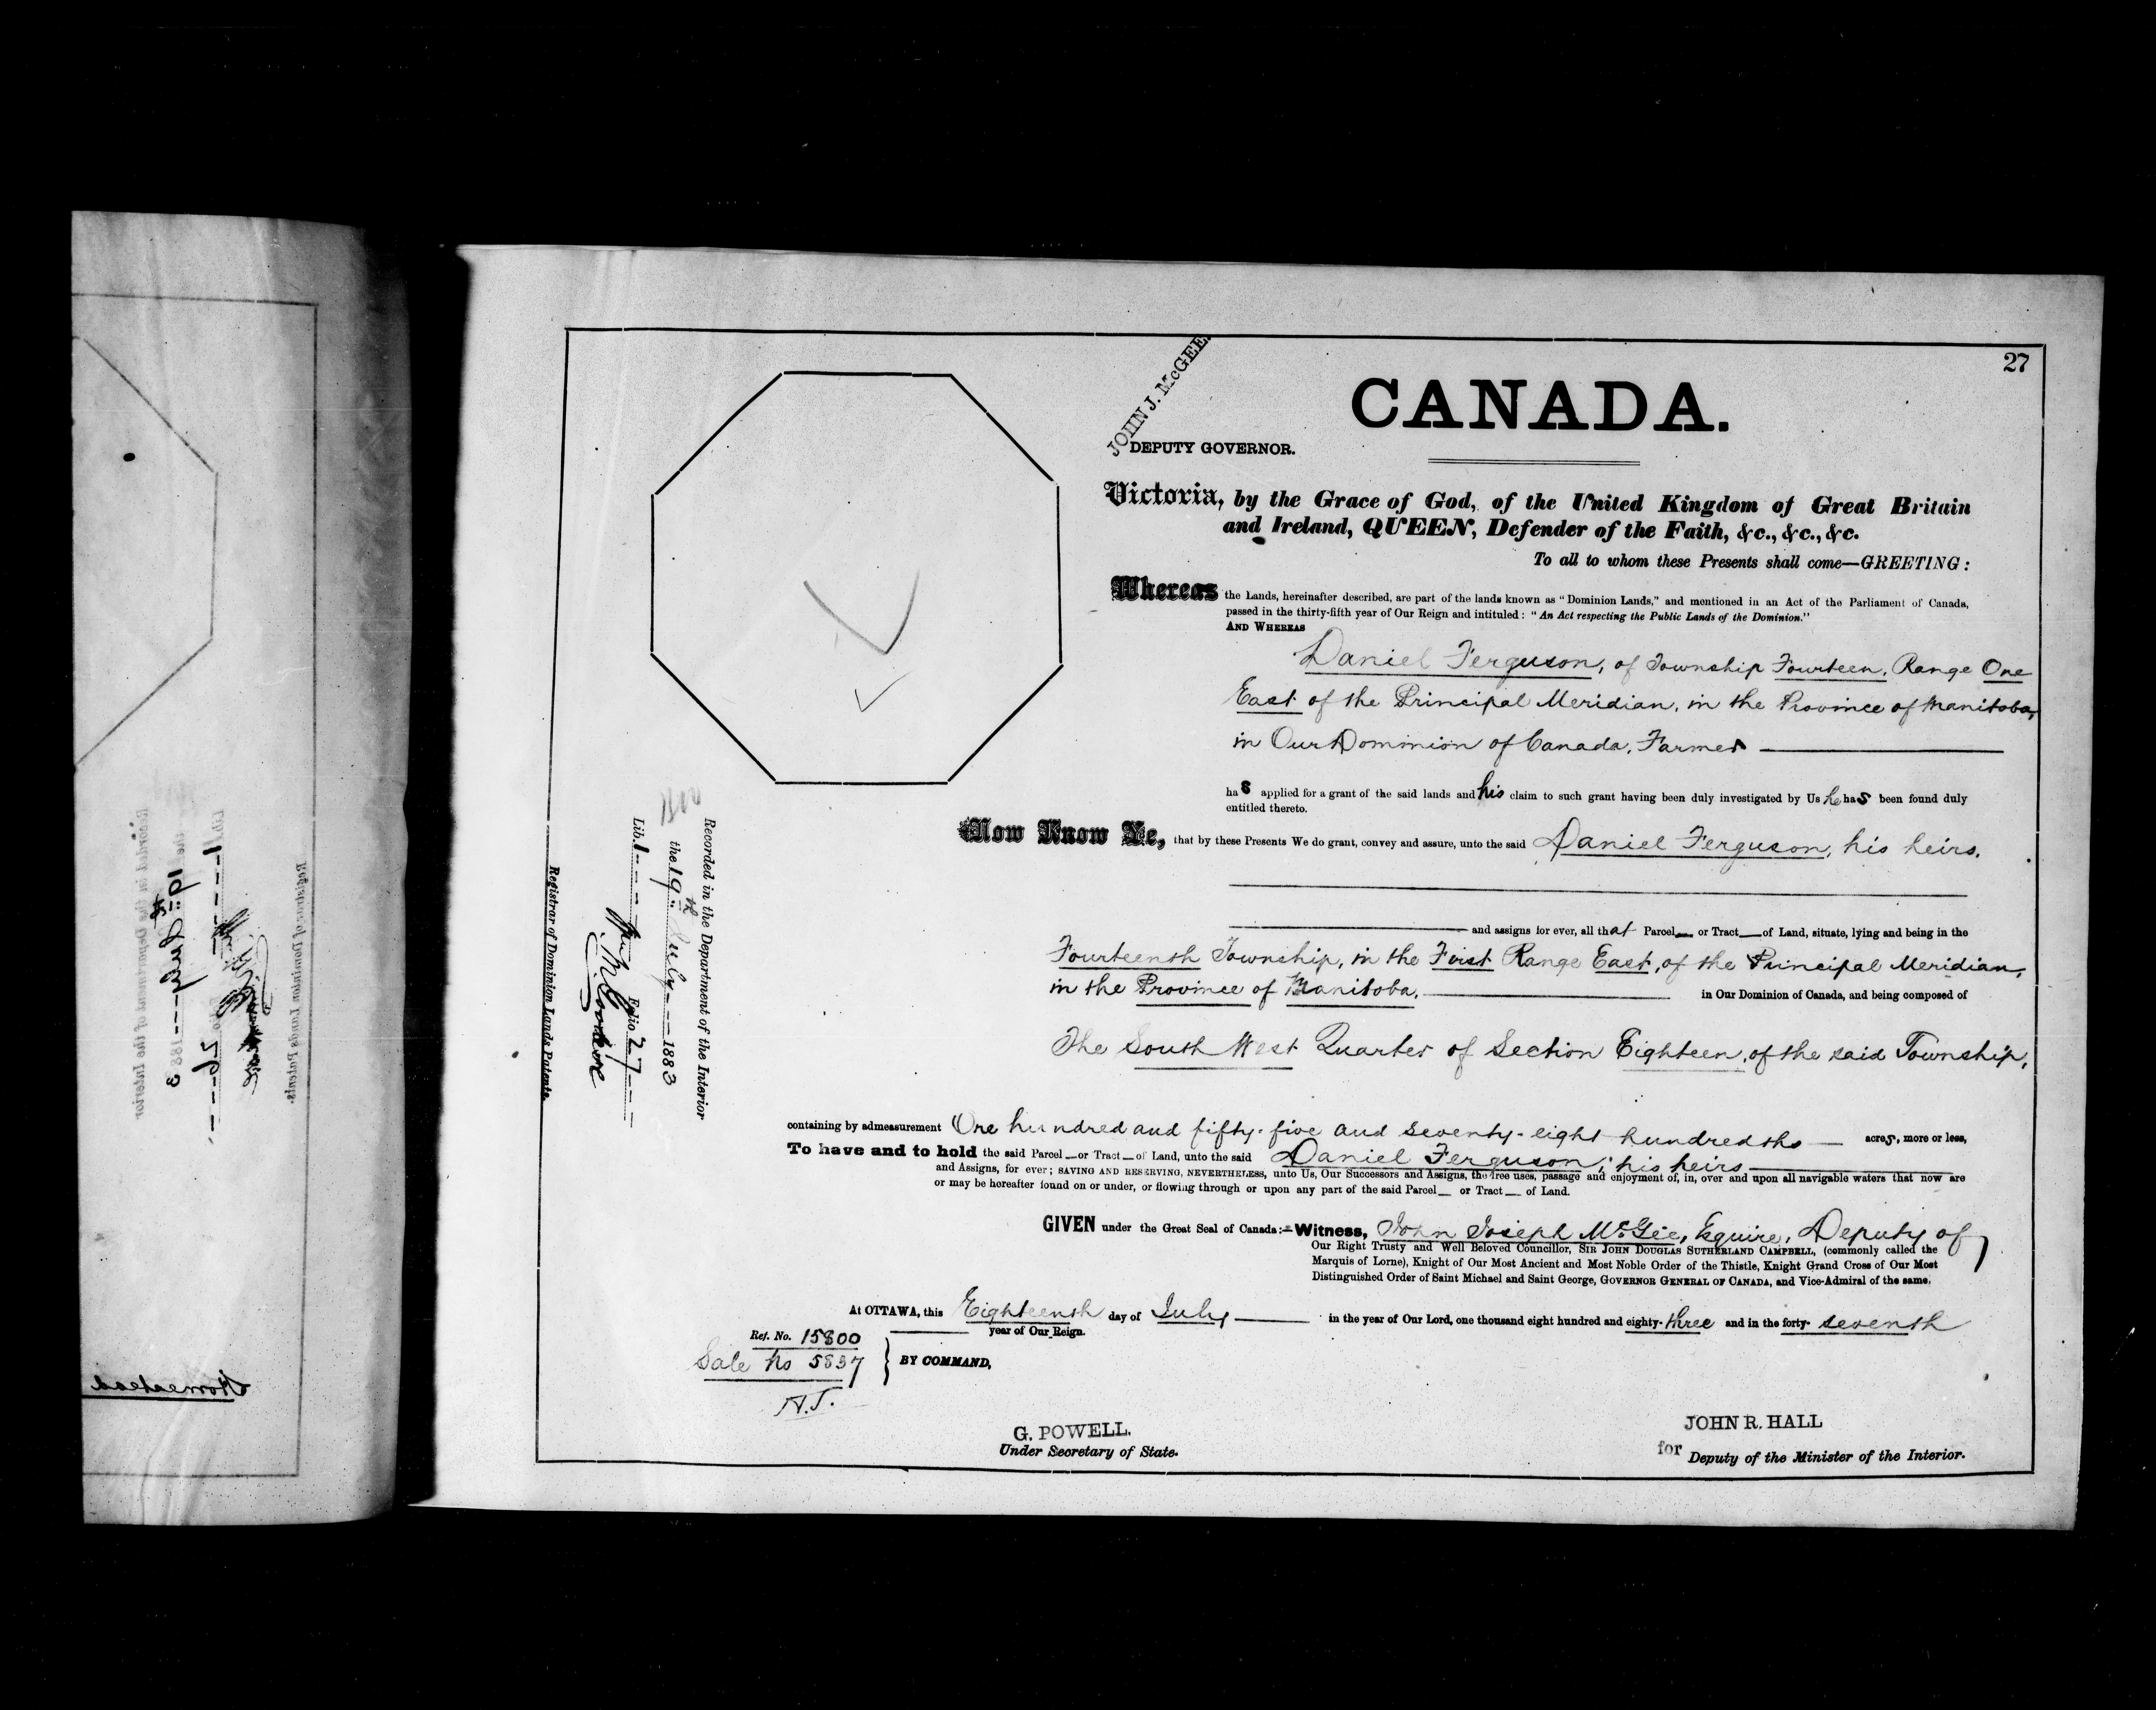 27
JOHN J. McGEE.
DEPUTY GOVERNOR.
CANADA.
Victoria, by the Grace of God, of the United Kingdom of Great Britain
and Ireland, QUEEN, Defender of the Faith, &c., &c., &c.
To all to whom these Presents shall come—GREETING:
Whereas the Lands, hereinafter described, are part of the lands known as "Dominion Lands," and mentioned in an Act of the Parliament of Canada,
passed in the thirty-fifth year of Our Reign and intituled: "An Act respecting the Public Lands of the Dominion."
AND WHEREAS
Daniel Ferguson, of Township Fourteen, Range One
East of the Principal Meridian, in the Province of Manitoba,
in Our Dominion of Canada, Farmer
has applied for a grant of the said lands and his claim to such grant having been duly investigated by Us he has been found duly
entitled thereto.
Now Know Ye, that by these Presents We do grant, convey and assure, unto the said Daniel Ferguson, his heirs,
and assigns for ever, all that Parcel or Tract of Land, situate, lying and being in the
Fourteenth Township, in the First Range East, of the Principal Meridian,
in the Province of Manitoba, in Our Dominion of Canada, and being composed of
The South West Quarter of Section Eighteen, of the said Township,
containing by admeasurement One hundred and fifty-five and seventy-eight hundredths acres, more or less,
To have and to hold the said Parcel or Tract of Land, unto the said Daniel Ferguson, his heirs
and Assigns, for ever; SAVING AND RESERVING, NEVERTHELESS, unto Us, Our Successors and Assigns, the free uses, passage and enjoyment of, in, over and upon all navigable waters that now are
or may be hereafter found on or under, or flowing through or upon any part of the said Parcel or Tract of Land.
GIVEN under the Great Seal of Canada:—Witness, John Joseph McGee, Esquire, Deputy of
Our Right Trusty and Well Beloved Councillor, SIR JOHN DOUGLAS SUTHERLAND CAMPBELL, (commonly called the
Marquis of Lorne), Knight of Our Most Ancient and Most Noble Order of the Thistle, Knight Grand Cross of Our Most
Distinguished Order of Saint Michael and Saint George, GOVERNOR GENERAL OF CANADA, and Vice-Admiral of the same,
At OTTAWA, this Eighteenth day of July in the year of Our Lord, one thousand eight hundred and eighty-three and in the forty-seventh
year of Our Reign.
Ref. No. 15800
Sale No 5837
BY COMMAND,
A.J.
G. POWELL.
Under Secretary of State.
JOHN R. HALL
for Deputy of the Minister of the Interior.
Recorded in the Department of the Interior
the 19th July 1883
Lib. 1 Folio 27
Registrar of Dominion Lands Patents.
Recorded in the Department of the Interior
the 19th July 1883
Lib. 1 Folio 26
Registrar of Dominion Lands Patents.
Homestead